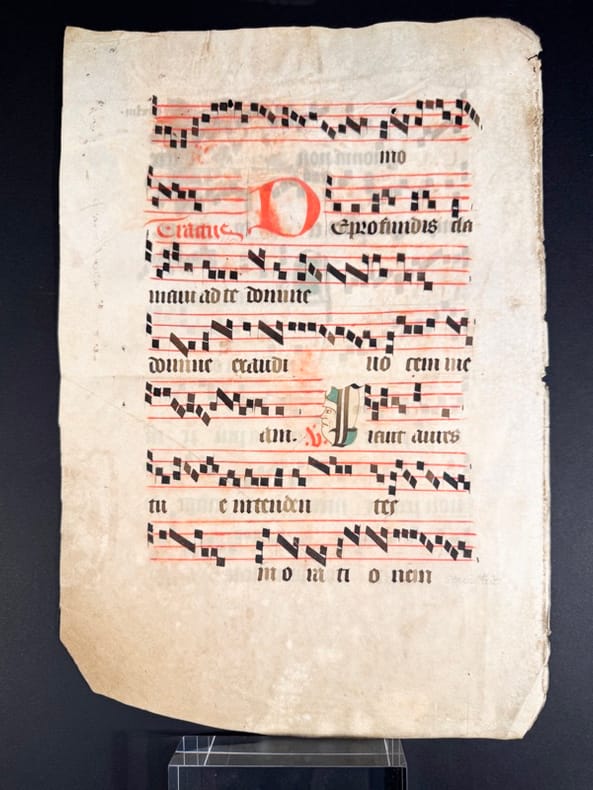 mo
Tractus DE profundis cla
mavi ad te domine
domine exaudi vo cem me
am. V. Fiant aures
tu e intenden tes
in o ra ti o nem